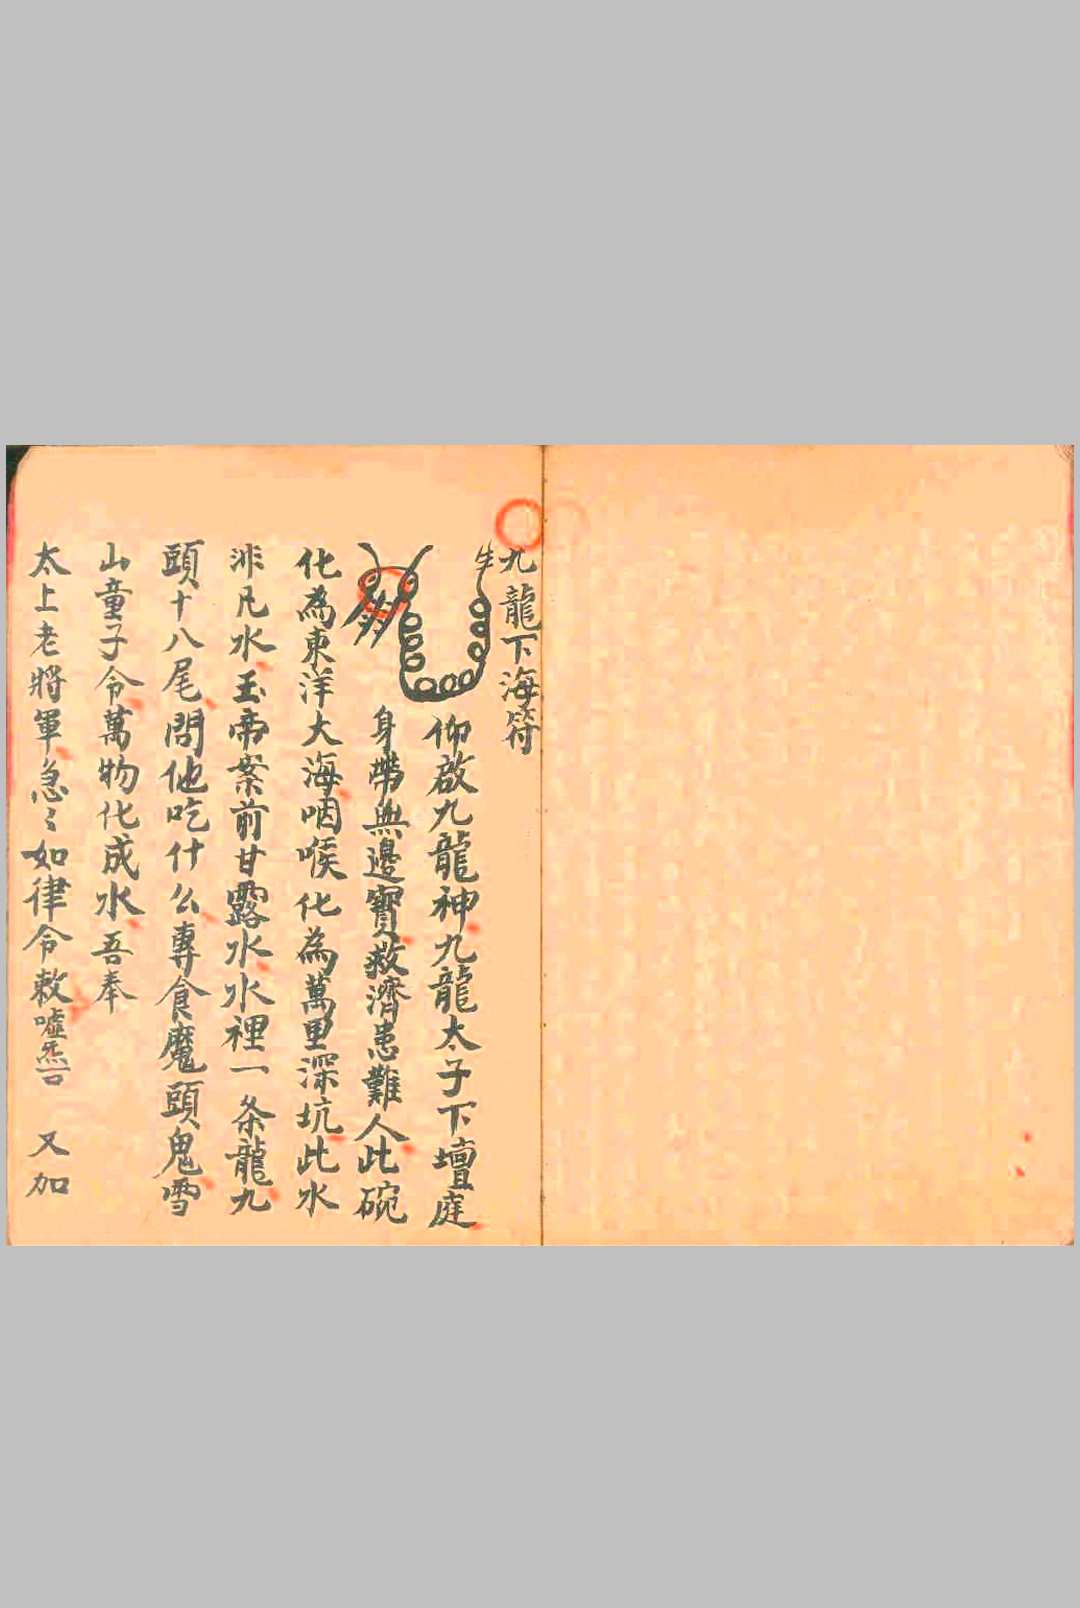 九龍下海符
仰啟九龍神九龍太子下壇庭
身帶無邊寶救濟患難人此碗
化為東洋大海咽喉化為萬里深坑此水
非凡水玉帝案前甘露水水裡一条龍九
頭十八尾問他吃什么專食魔頭鬼雪
山童子令萬物化成水吾奉
太上老將軍急〻如律令敕噓 又加